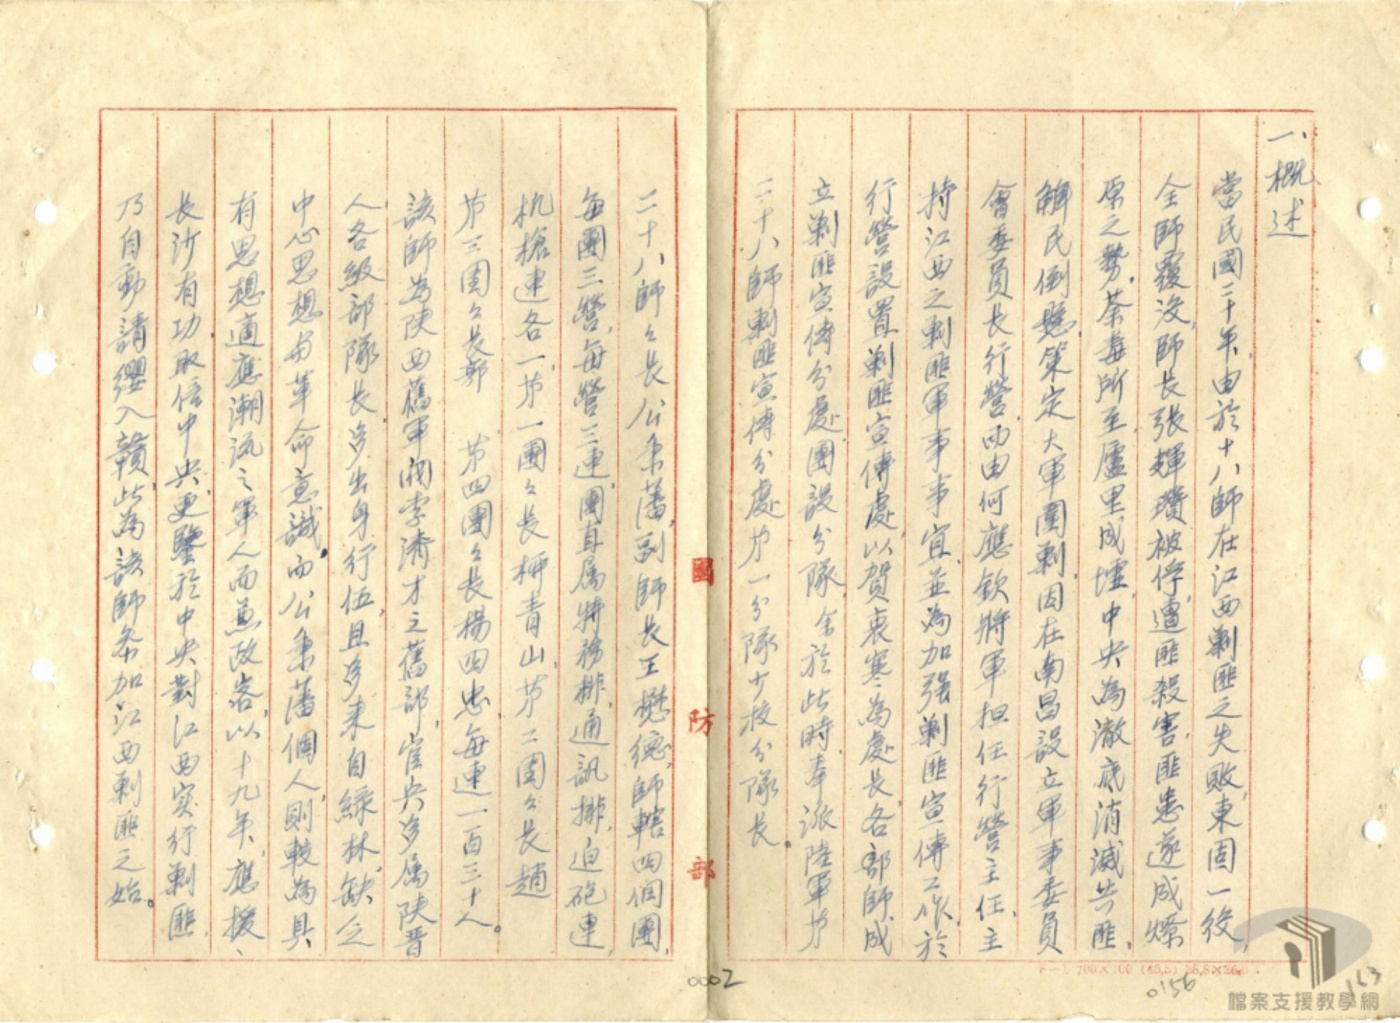 一、概述
當民國二十年，由於十八師在江西剿匪之失敗，東固一役，
全師覆沒，師長張輝瓚被俘，遭匪殺害，匪患遂成燎
原之勢，荼毒所至，廬里成墟，中央為澈底消滅共匪，
解民倒懸，策定大軍圍剿，因在南昌設立軍事委員
會委員長行營，而由何應欽將軍担任行營主任，主
持江西之剿匪軍事事宜，並為加强剿匪宣傳工作，於
行營設置剿匪宣傳處，以賀衷寒為處長，各部師成
立剿匪宣傳分處，團設分隊，余於此時奉派陸軍第
二十八師剿匪宣傳分處第一分隊少校分隊長。
二十八師々長公秉藩，副師長王懋德，師轄四個團，
每團三營，每營三連，團直属特務排，通訊排，迫砲連，
机槍連各一，第一團々長柳青山，第二團々長趙
第三團々長郭　第四團々長楊四忠，每連一百三十人。
該師為陝西舊軍閥李濟才之舊部，官兵多属陝晉
人，各級部隊長，多出身行伍，且多来自綠林，缺乏
中心思想与革命意識，而公秉藩個人，則較為具
有思想適應潮流之軍人而兼政客，以十九年，應援
長沙有功，取信中央，更鑒於中央對江西实行剿匪，
乃自動請纓入贛，此為該師参加江西剿匪之始。
國防部
0002
0156
163
檔案支援教學網